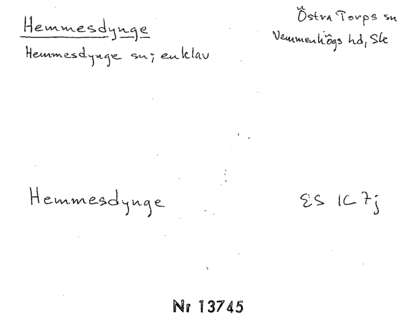 Hemmesdynge
Östra Torps sn
Hemmesdynge sn; enklav
Vemmenhögs hd, Sk
Hemmesdynge
ES 1C 7j
Nr 13745